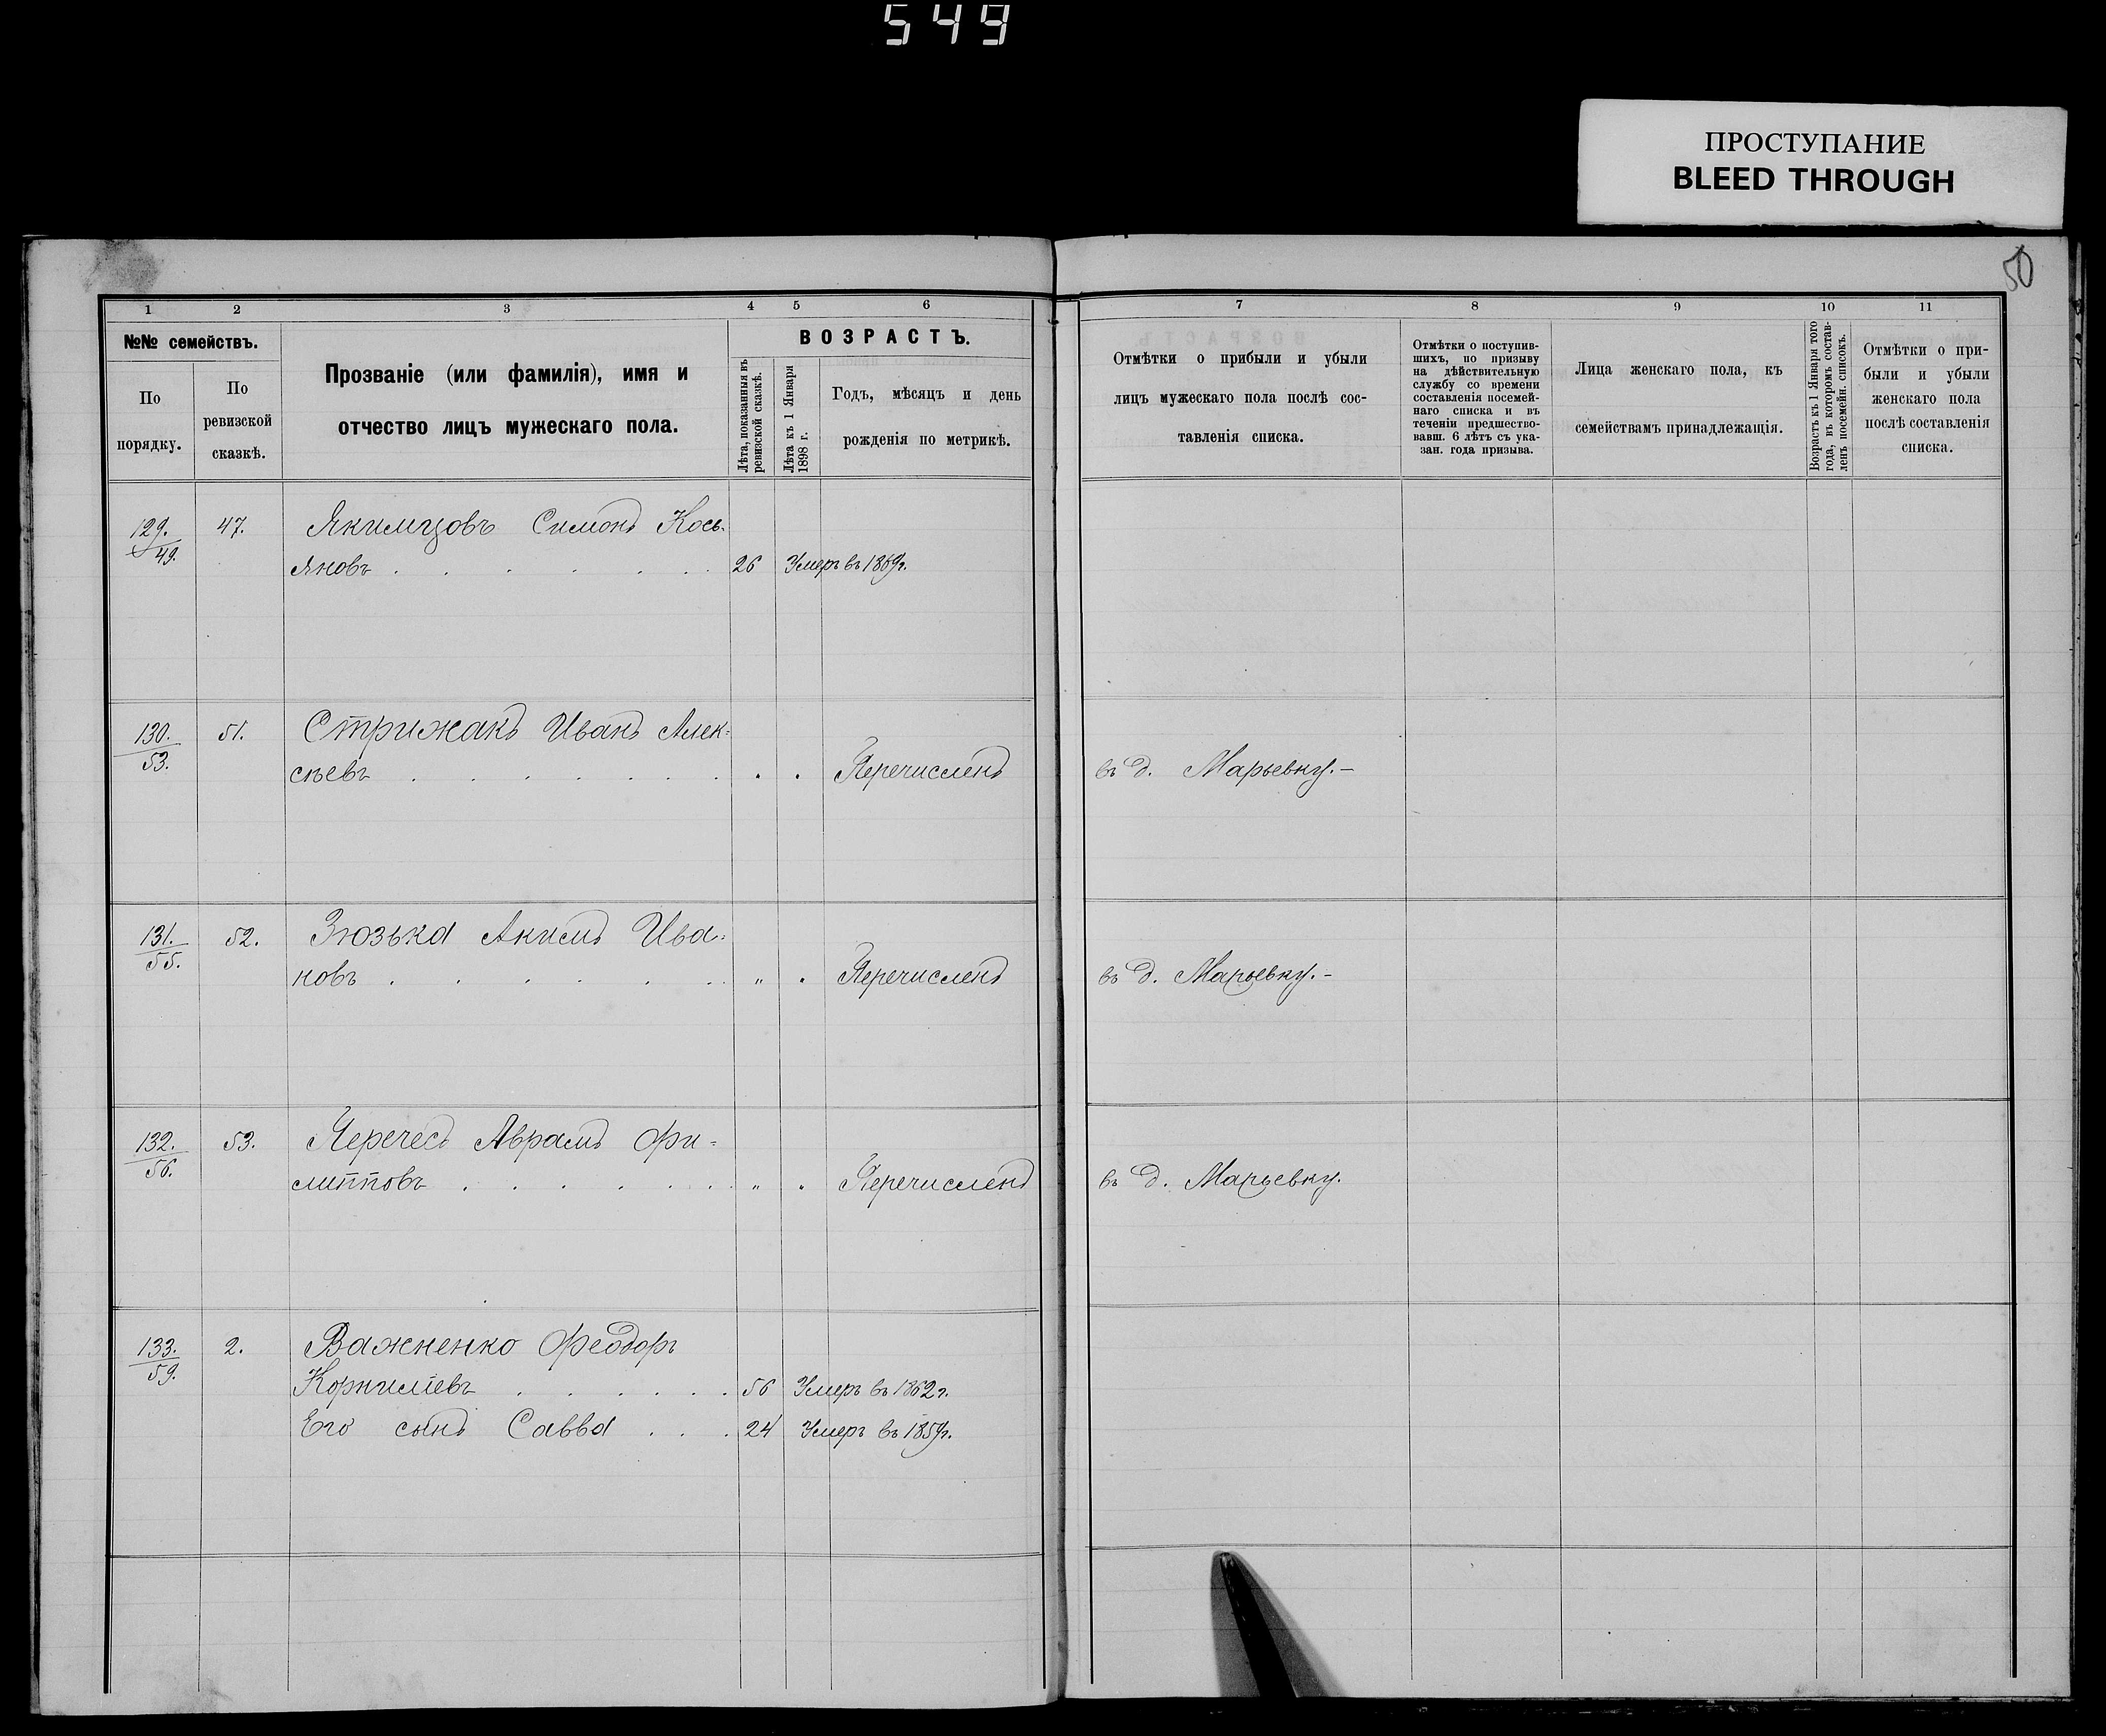 549
ПРОСТУПАНИЕ
BLEED THROUGH
50
1 2 3 4 5 6
№№ семействъ.
По порядку.
По ревизской сказкѣ.
Прозваніе (или фамилія), имя и
отчество лицъ мужескаго пола.
ВОЗРАСТЪ.
Лѣта, показанныя въ
ревизской сказкѣ.
Лѣта къ 1 Января
1898 г.
Годъ, мѣсяцъ и день
рожденія по метрикѣ.
129. 47. Якимцовъ Симонъ Кось-
49. яновъ . . . . . . . 26 Умеръ въ 1869г.
130. 51. Стрижакъ Иванъ Алек-
53. сѣевъ . . . . . . . Перечисленъ
131. 52. Зюзька Акимъ Ива-
55. новъ . . . . . . " Перечисленъ
132. 53. Перечесъ Аврамъ Фи-
56. липповъ . . . . . . " Перечисленъ
133. 2. Важненко Феодоръ
59. Корниліевъ . . . . . . 56 Умеръ въ 1862 г.
Его сынъ Савва . . . 24 Умеръ въ 1859г.
7 8 9 10 11
Отмѣтки о прибыли и убыли
лицъ мужескаго пола послѣ сос-
тавленія списка.
Отмѣтки о поступив-
шихъ, по призыву
на дѣйствительную
службу со времени
составленія посемей-
наго списка и въ
теченіи предшество-
вавш. 6 лѣтъ съ ука-
зан. года призыва.
Лица женскаго пола, къ
семействамъ принадлежащія.
Возрастъ къ 1 Января того
года, въ которомъ состав-
ленъ посемейн. списокъ.
Отмѣтки о при-
были и убыли
женскаго пола
послѣ составленія
списка.
въ д. Марьевку.-
въ д. Марьевку.-
въ д. Марьевку.